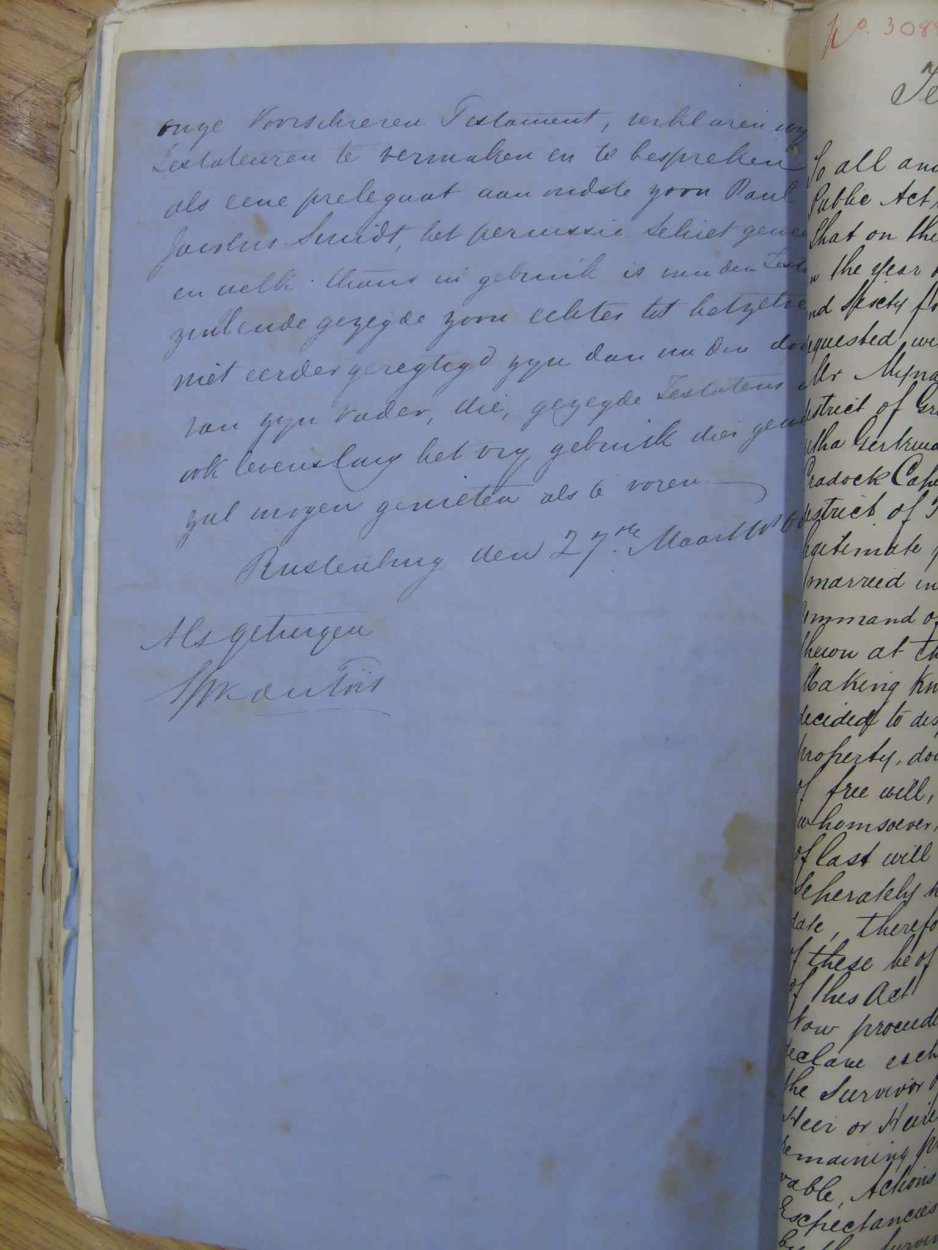 onze Voorschreven Testament, verklaren wy
Testateuren te vermaken en te bespreken
als eene prelegaat aan oudste zoon Paul
Jacobus Smidt, het percussie Schiet gewe
en welk thans in gebruik is van den Test
zullende gezegde zoon echter tot hetzelve
niet eerder geregtigd zyn dan na den doo
van zyn Vader, die, gezegde Testateur
ook levenslang het vry gebruik dies gewe
zal mogen genieten als te voren
Rustenburg den 27ste Maart
Als getuigen
du Toit
No. 308
Te
To all and
Public Act,
That on the
in the year o
nd Sixty fo
equested wi
Mr Myna
istrict of Gra
tha Gertrud
Cradock Cape
istrict of
legitimate
married in
ommand o
hereon at th
Making kn
decided to dis
property, do
of free will,
whomsoever,
of last will
Seherately
date, therefo
of these be of
of this Act
Now proceedi
declare each
the Survivor o
Heir or Heire
remaining
vable, Actions
Expectancies
by the Surviv